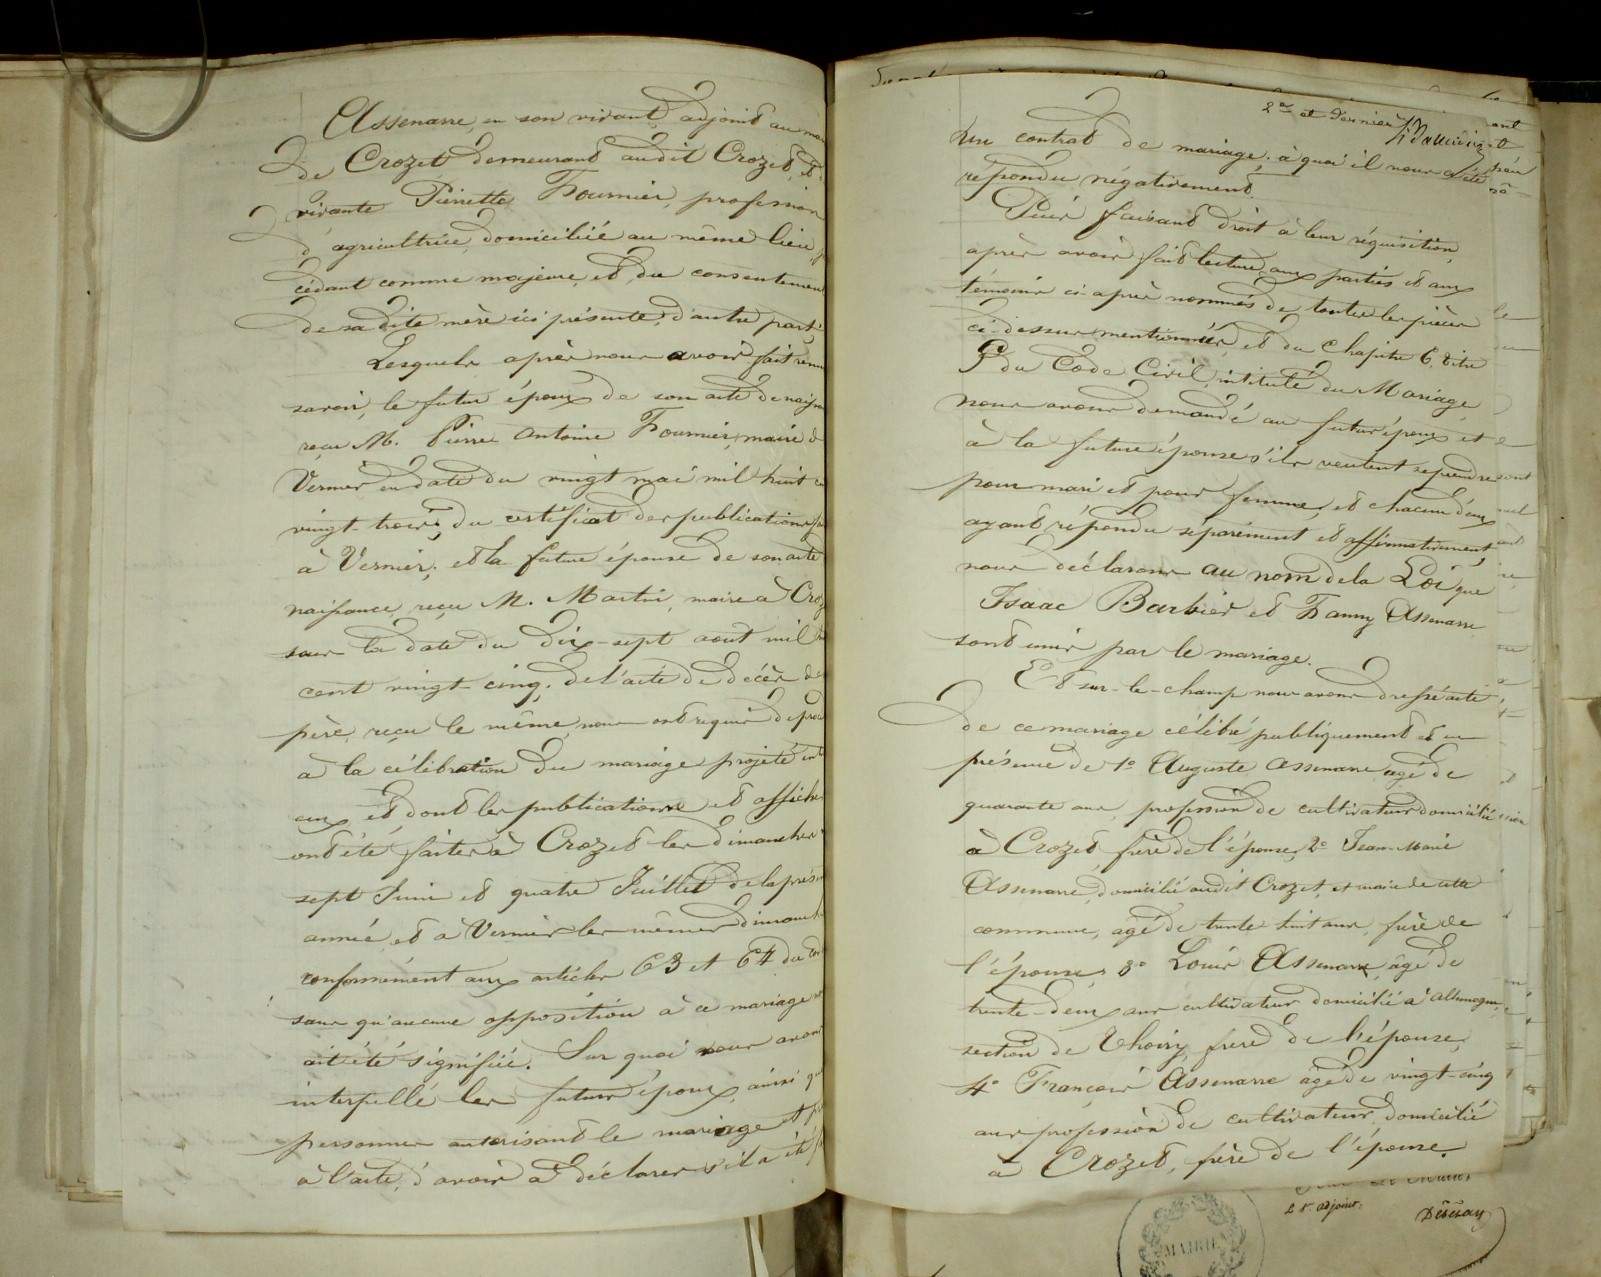 Assenare, en son vivant, adjoint au
de Crozet demeurant audit Crozet, et
vivante Pierrette Fournier, profession
d'agricultrice, domiciliée au même lieu,
cédant comme majeure, et du consentement
de sa dite mère ici présente, d'autre part
Lesquels après nous avoir fait
savoir, le futur époux de son acte de
reçu M. Pierre Antoine Fournier, maire
Vernier en date du vingt mai mil huit
vingt-trois, du certificat des publications
à Vernier, et la future épouse de son acte
naissance, reçu M. Martin, maire à
sous la date du dix-sept aout mil
cent vingt-cinq, de l'acte de décès
père, reçu le même, nous ont requis de
à la célébration du mariage projeté
eux et dont les publications et
ont été faites à Crozet les dimanches
sept Juin et quatre Juillet de la
année, et à Vernier les mêmes
conformément aux articles 63 et 64 du
sans qu'aucune opposition à ce mariage
ait été signifiée. Sur quoi nous avons
interpellé les futurs époux, ainsi
personnes autorisant le mariage et
à l'acte, d'avoir à déclarer s'il a été
2e et dernier
un contrat de mariage, à quoi il nous a été
répondu négativement.
Puis faisant droit à leur réquisition,
après avoir fait lecture aux parties et aux
témoins ci-après nommés de toutes les pièces
ci-dessus mentionnées, et du chapitre 6, titre
5 du Code Civil, intitulé du Mariage,
nous avons demandé au futur époux et
à la future épouse s'ils veulent se prendre
pour mari et pour femme, et chacun d'eux
ayant répondu séparément et affirmativement,
nous déclarons au nom de la Loi que
Isaac Barbier et Fanny Assenare
sont unis par le mariage.
Et sur-le-champ nous avons dressé acte
de ce mariage célébré publiquement et en
présence de 1° Auguste Assenare, agé de
quarante ans, profession de cultivateur domicilié
à Crozet, frère de l'épouse, 2° Jean-Marie
Assenare, domicilié audit Crozet, et maire de cette
commune, agé de trente huit ans, frère de
l'épouse, 3° Louis Assenare, âgé de
trente-deux ans cultivateur domicilié à Allemogne,
section de Thoiry, frère de l'épouse,
4° François Assenare âgé de vingt-cinq
ans profession de cultivateur, domicilié
à Crozet, frère de l'épouse.
adjoint
MAIRIE